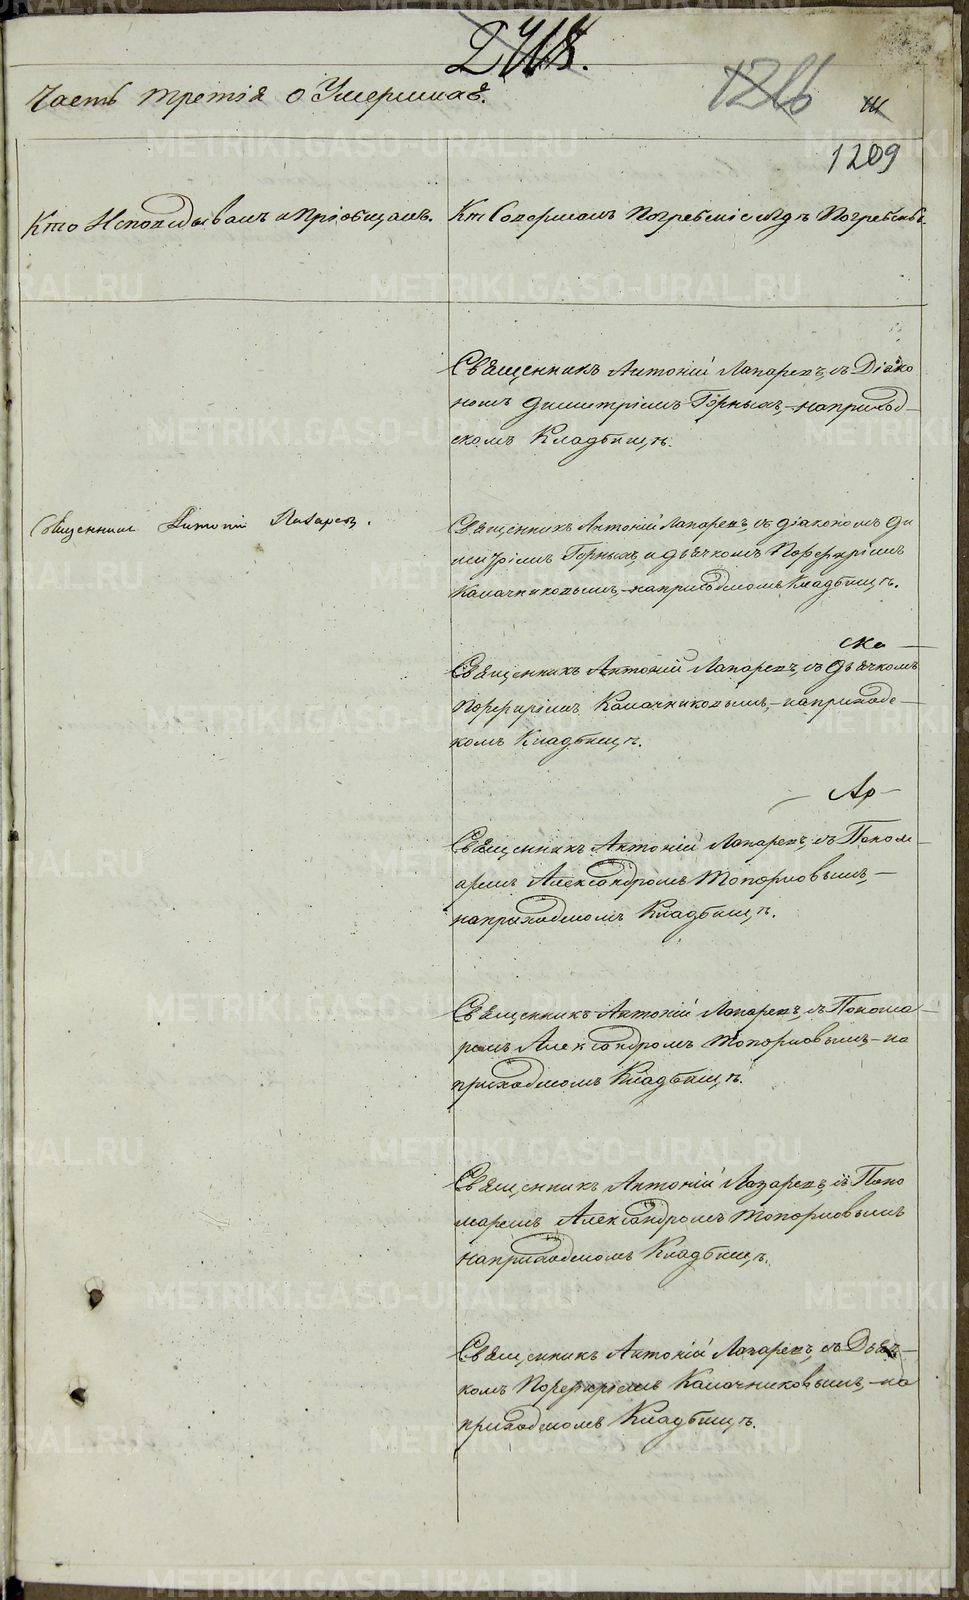 2418.
1216
111
Часть третія о Умершихъ.
1209
Кто Исповѣдывалъ и Пріобщалъ.
Кто Совершалъ Погребеніе и гдѣ Погребены.
Священникъ Антоній Лазаревъ, съ Діако
номъ Димитріемъ Горныхъ, - на приход-
скомъ Кладбищѣ.
Священникъ Антоній Лазаревъ.
Священникъ Антоній Лазаревъ, съ діакономъ Ди
митріемъ Горныхъ, и дьячкомъ Порфиріемъ
Калачниковымъ, - на приходскомъ Кладбищѣ.
Священникъ Антоній Лазаревъ, съ дьячкомъ
Порфиріемъ Калачниковымъ, - на приходс-
комъ Кладбищѣ.
Священникъ Антоній Лазаревъ, съ Поном-
аремъ Александромъ Топорковымъ, -
на приходскомъ Кладбищѣ.
Священникъ Антоній Лазаревъ, съ Понома-
ремъ Александромъ Топорковымъ, - на
приходскомъ Кладбищѣ.
Священникъ Антоній Лазаревъ, съ Поно
маремъ Александромъ Топорковымъ
на приходскомъ Кладбищѣ.
Священникъ Антоній Лазаревъ, съ Дьяч-
комъ Порфиріемъ Калачниковымъ, - на
приходскомъ Кладбищѣ.
METRIKI.GASO-URAL.RU